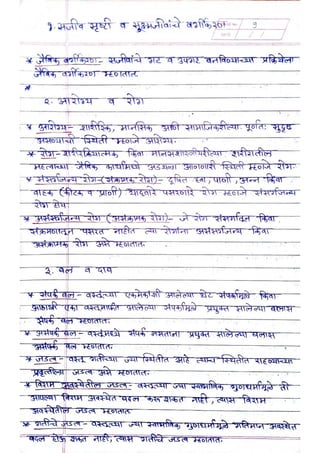 १. सजीव सृष्टी व सूक्ष्मजीवांचे वर्गीकरण
१
* जैविक वर्गीकरण - सजीवांचे गट व उपगट बनविण्याच्या प्रक्रियेला
जैविक वर्गीकरण म्हणतात.
२. आरोग्य व रोग
* आरोग्य - शारीरिक, मानसिक आणि सामाजिकरीत्या पूर्णतः सुदृढ
असण्याची स्थिती म्हणजे आरोग्य.
* रोग - शरीरक्रियात्मक किंवा मानसशास्त्रीयरीत्या शरीरातील
महत्वाच्या जैविक कार्यामध्ये अडथळा आणणारी स्थिती म्हणजे रोग
* संसर्गजन्य रोग (संक्रामक रोग) - दूषित हवा, पाणी, अन्न किंवा
वाहक (कीटक व प्राणी) याद्वारे पसरणारे रोग म्हणजे संसर्गजन्य
रोग होय.
* असंसर्गजन्य रोग (असंक्रामक रोग) - जे रोग संसर्गातून किंवा
संक्रमणातून पसरत नाहीत त्या रोगांना असंसर्गजन्य किंवा
असंक्रामक रोग असे म्हणतात.
३. बल व दाब
* संपर्क बल - वस्तूंच्या एकमेकांशी आलेल्या थेट संपर्कामुळे किंवा
आणखी एका वस्तूमार्फत आलेल्या संपर्कामुळे प्रयुक्त झालेल्या बलास
संपर्क बल म्हणतात.
* असंपर्क बल - वस्तूंमध्ये संपर्क नसताना प्रयुक्त झालेल्या बलास
असंपर्क बल म्हणतात.
* जडत्व - वस्तू गतीच्या ज्या स्थितीत आहे त्याच स्थितीत राहण्याच्या
प्रवृत्तीला जडत्व असे म्हणतात.
* विराम अवस्थेतील जडत्व - वस्तूच्या ज्या स्वाभाविक गुणधर्मामुळे ती
आपल्या विराम अवस्थेत बदल करू शकत नाही, त्यास विराम
अवस्थेतील जडत्व म्हणतात.
* गतीचे जडत्व - वस्तूच्या ज्या स्वाभाविक गुणधर्मामुळे गतिमान अवस्थेत
बदल होऊ शकत नाही, त्यास गतीचे जडत्व म्हणतात.